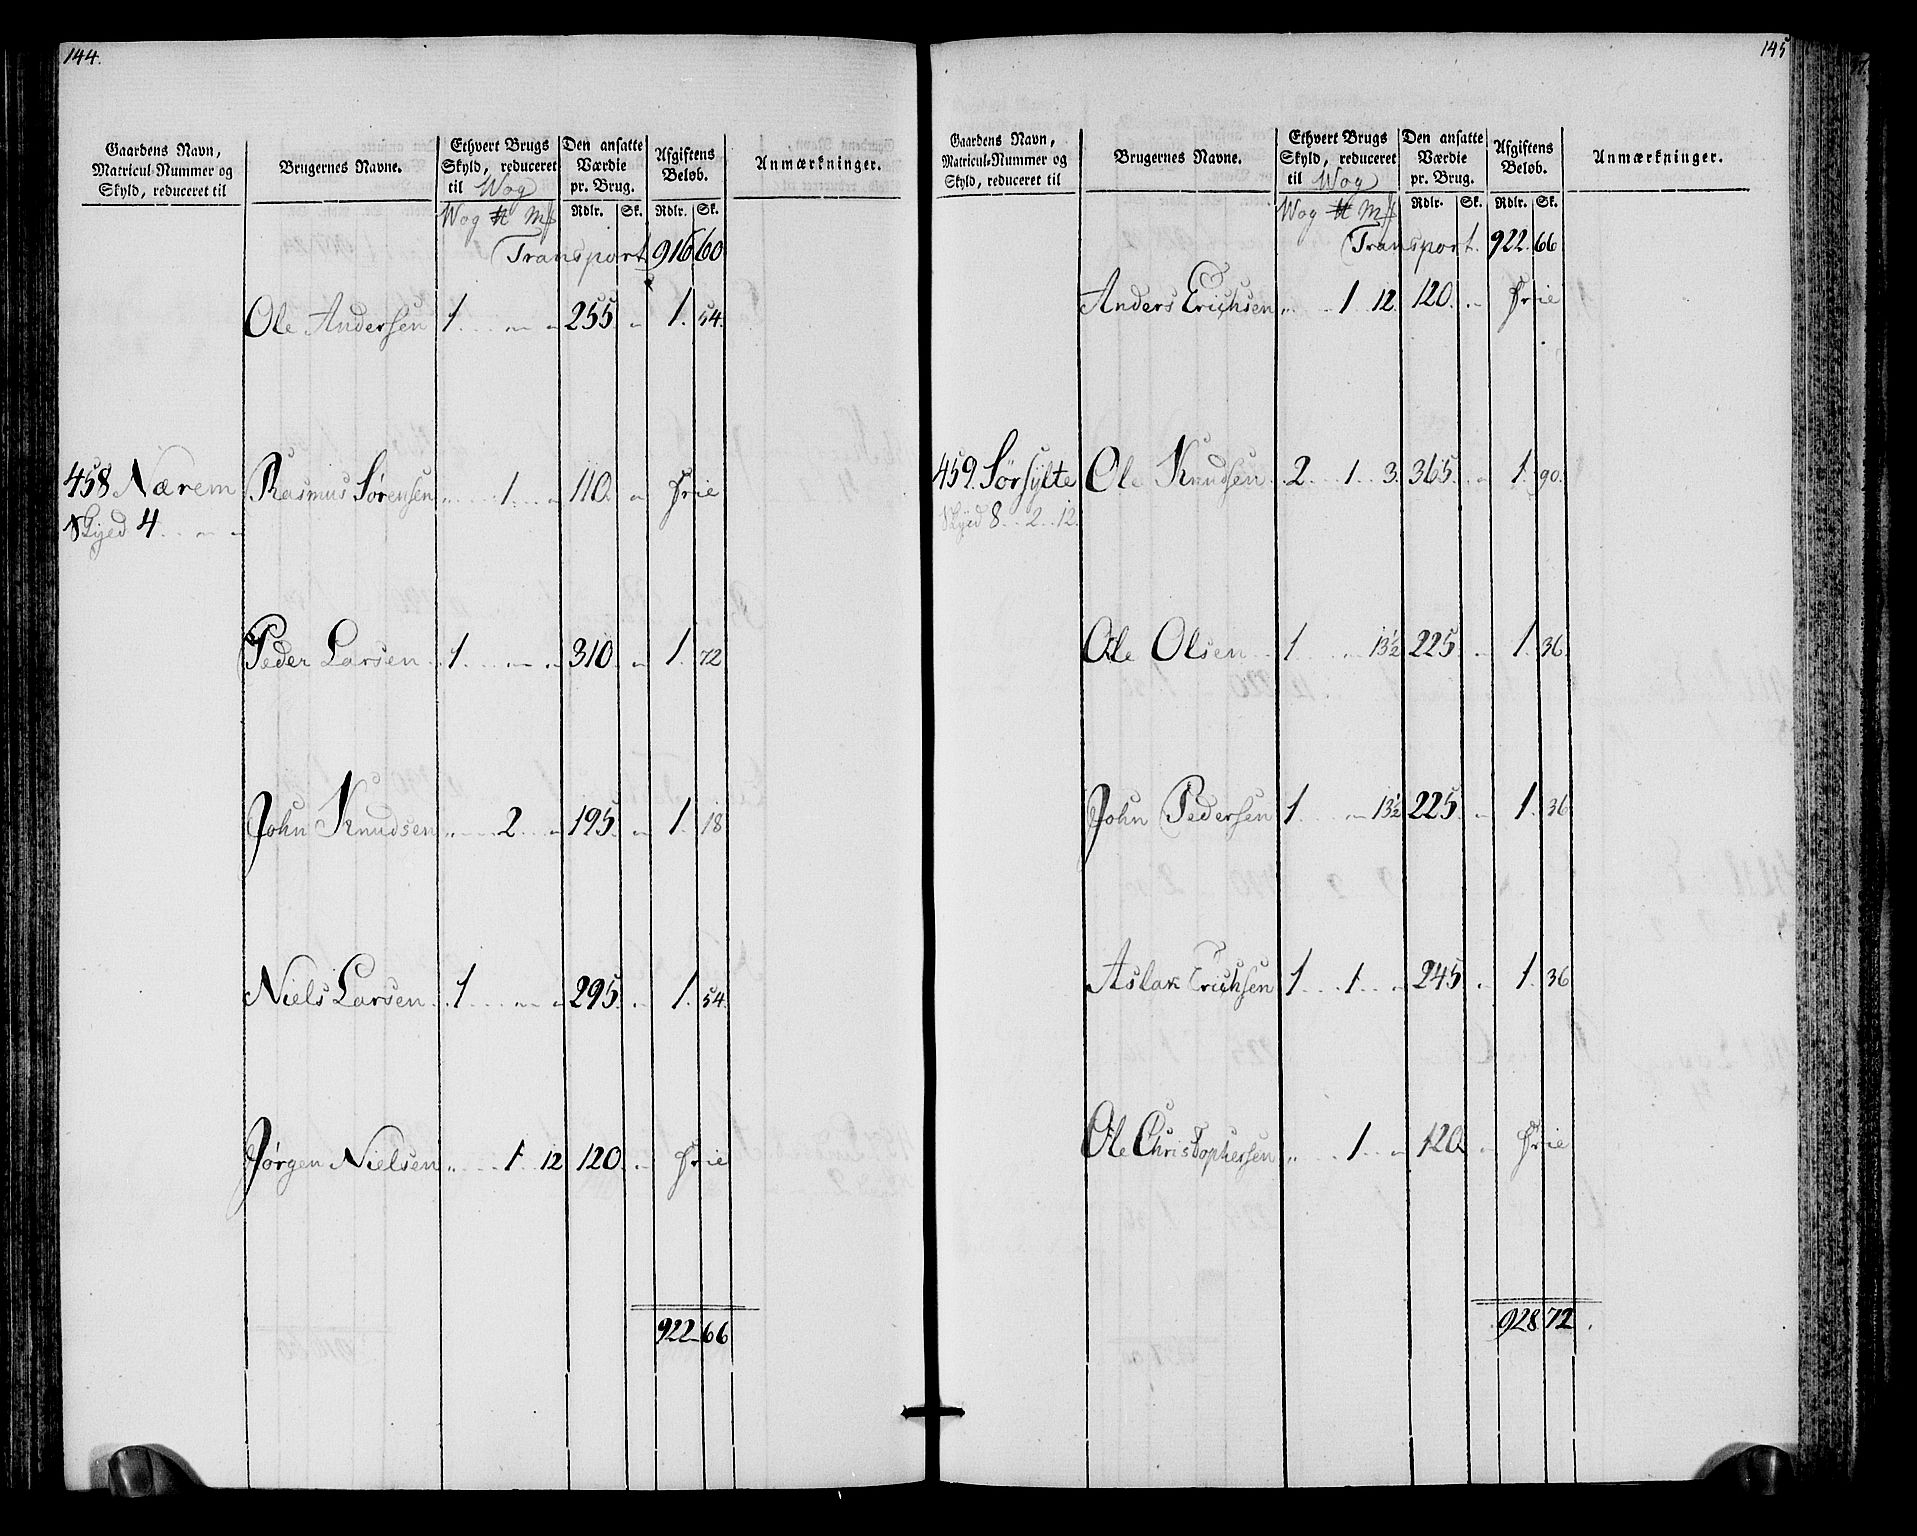 144.
Gaardens Navn, Matricul-Nummer og Skyld, reduceret til
Brugernes Navne.
Ethvert Brugs Skyld, reduceret til Wog
Den ansatte Værdie pr. Brug.
Afgiftens Beløb.
Anmærkninger.
Wog ℔ Mk Rdlr. Sk. Rdlr. Sk.
Transport 916 60
Ole Andersen 1 . . . „ „ 255 „ 1. 54.
458 Nærem Rasmus Sørensen „ . . . 1 . . „ 110. „ Frie
Skyed 4 . . „ „
Peder Larsen 1 . . . „ „ 310. „ 1. 72
John Knudsen „ . . . 2 . . „ 195. „ 1. 18
Niels Larsen 1 . . . „ „ 295. „ 1. 54.
Jørgen Nielsen „ . . . 1 . 12 120. „ Frie
922 66
145
Gaardens Navn, Matricul-Nummer og Skyld, reduceret til
Brugernes Navne.
Ethvert Brugs Skyld, reduceret til Wog
Den ansatte Værdie pr. Brug.
Afgiftens Beløb.
Anmærkninger.
Wog ℔ Mk Rdlr. Sk. Rdlr. Sk.
Transport. 922. 66
Anders Erichsen „ . . 1 12. 120. „ Frie
459. Sørsylte Ole Knudsen 2 . . . 1 . . 3. 365. „ 1. 90.
Skyed 8 . . 2 . . 12.
Ole Olsen 1 . . . „ 13½ 225. „ 1. 36.
John Pedersen 1 . . . „ 13½ 225. „ 1. 36
Aslak Erichsen 1 . . . 1 . . „ 245. „ 1. 36
Ole Christophersen „ . . . 1 . . „ 120. „ Frie
928 72